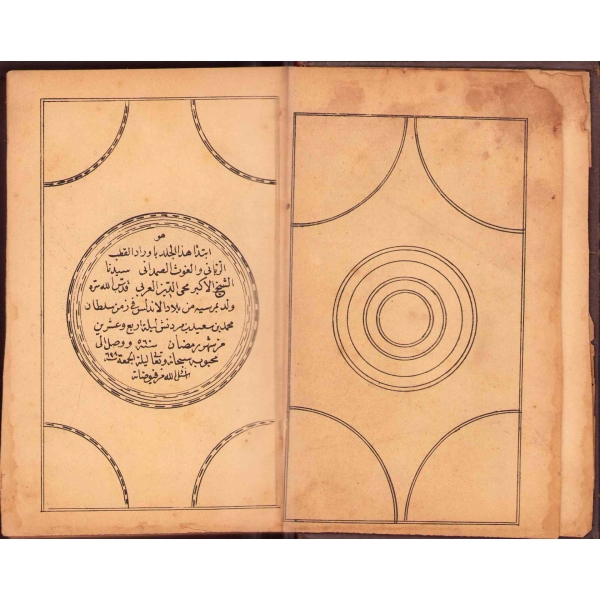 هو
ابتدأ هذا المجلد باوراد القطب
الربانی والغوث الصمدانی سیدنا
الشیخ الاکبر محی الدین العربی قدس الله سره
ولد بمرسیه من بلاد الاندلس فی زمن سلطان
محمد بن سعید بن مردنش لیلة اربع وعشرین
من شهر رمضان سنة ووصل الی
محبوبه سبحانه وتعالی لیلة الجمعة
الله من فیوضاته